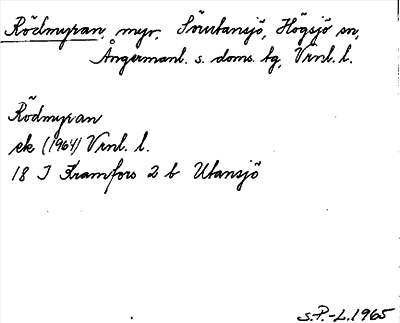 Rödmyran, myr, Sörutansjö, Högsjö sn,
Ångermanl. s. doms. tg, Vnl. l.
Rödmyran
ek (1964) Vnl. l.
18 I Kramfors 2 b Utansjö
S.P.-L. 1965